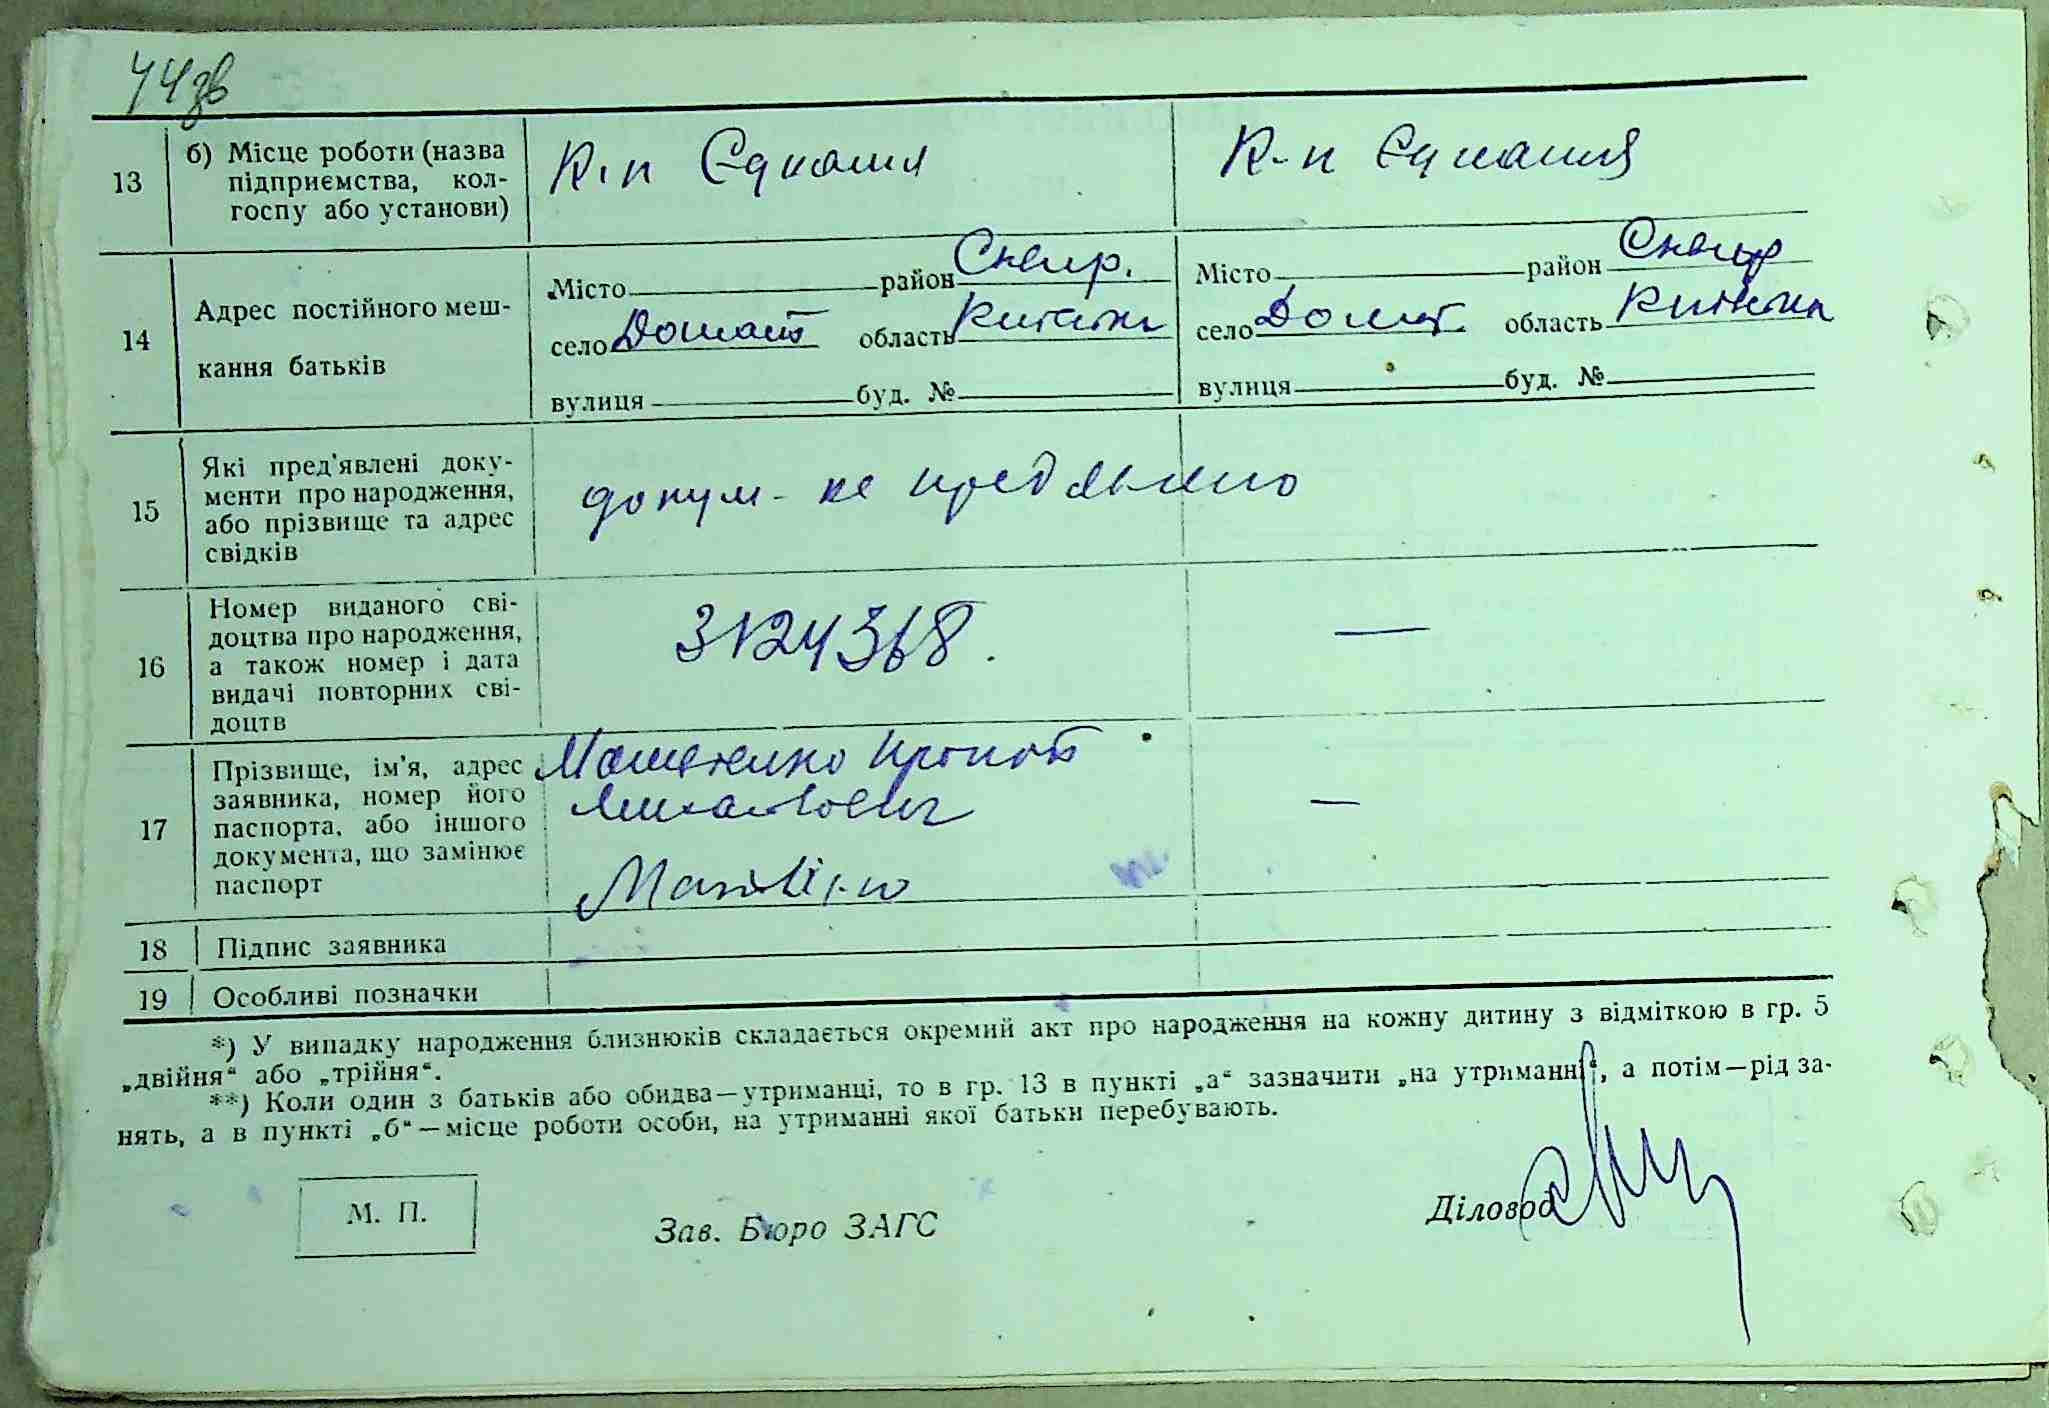 44зв
13 б) Місце роботи (назва підприємства, кол-
госпу або установи)
К-п Єднання К-п Єднання
14 Адрес постійного меш-
кання батьків
Місто район Сквир. Місто район Сквир
село область село область
вулиця буд. № вулиця буд. №
15 Які пред'явлені доку-
менти про народження,
або прізвище та адрес
свідків
докум- не предявлено
16 Номер виданого сві-
доцтва про народження,
а також номер і дата
видачі повторних сві-
доцтв
3124368. —
17 Прізвище, ім'я, адрес
заявника, номер його
паспорта, або іншого
документа, що замінює
паспорт
—
18 Підпис заявника
19 Особливі позначки
*) У випадку народження близнюків складається окремий акт про народження на кожну дитину з відміткою в гр. 5
„двійня“ або „трійня“.
**) Коли один з батьків або обидва—утриманці, то в гр. 13 в пункті „а“ зазначити „на утриманні“, а потім—рід за-
нять, а в пункті „б“—місце роботи особи, на утриманні якої батьки перебувають.
М. П.
Зав. Бюро ЗАГС
Діловод